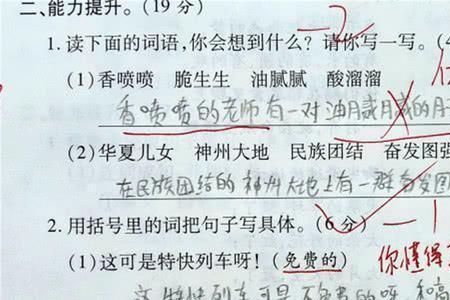 二、能力提升。(19 分)
1. 读下面的词语,你会想到什么? 请你写一写。(4
(1)香喷喷 脆生生 油腻腻 酸溜溜
香喷喷的老师有一对油腻腻的
(2)华夏儿女 神州大地 民族团结 奋发图强
在民族团结的神州大地上有一群奋发图
2. 用括号里的词把句子写具体。(6 分) —1
(1)这可是特快列车呀! (免费的) 你懂得
特快列车可是不免费的呀